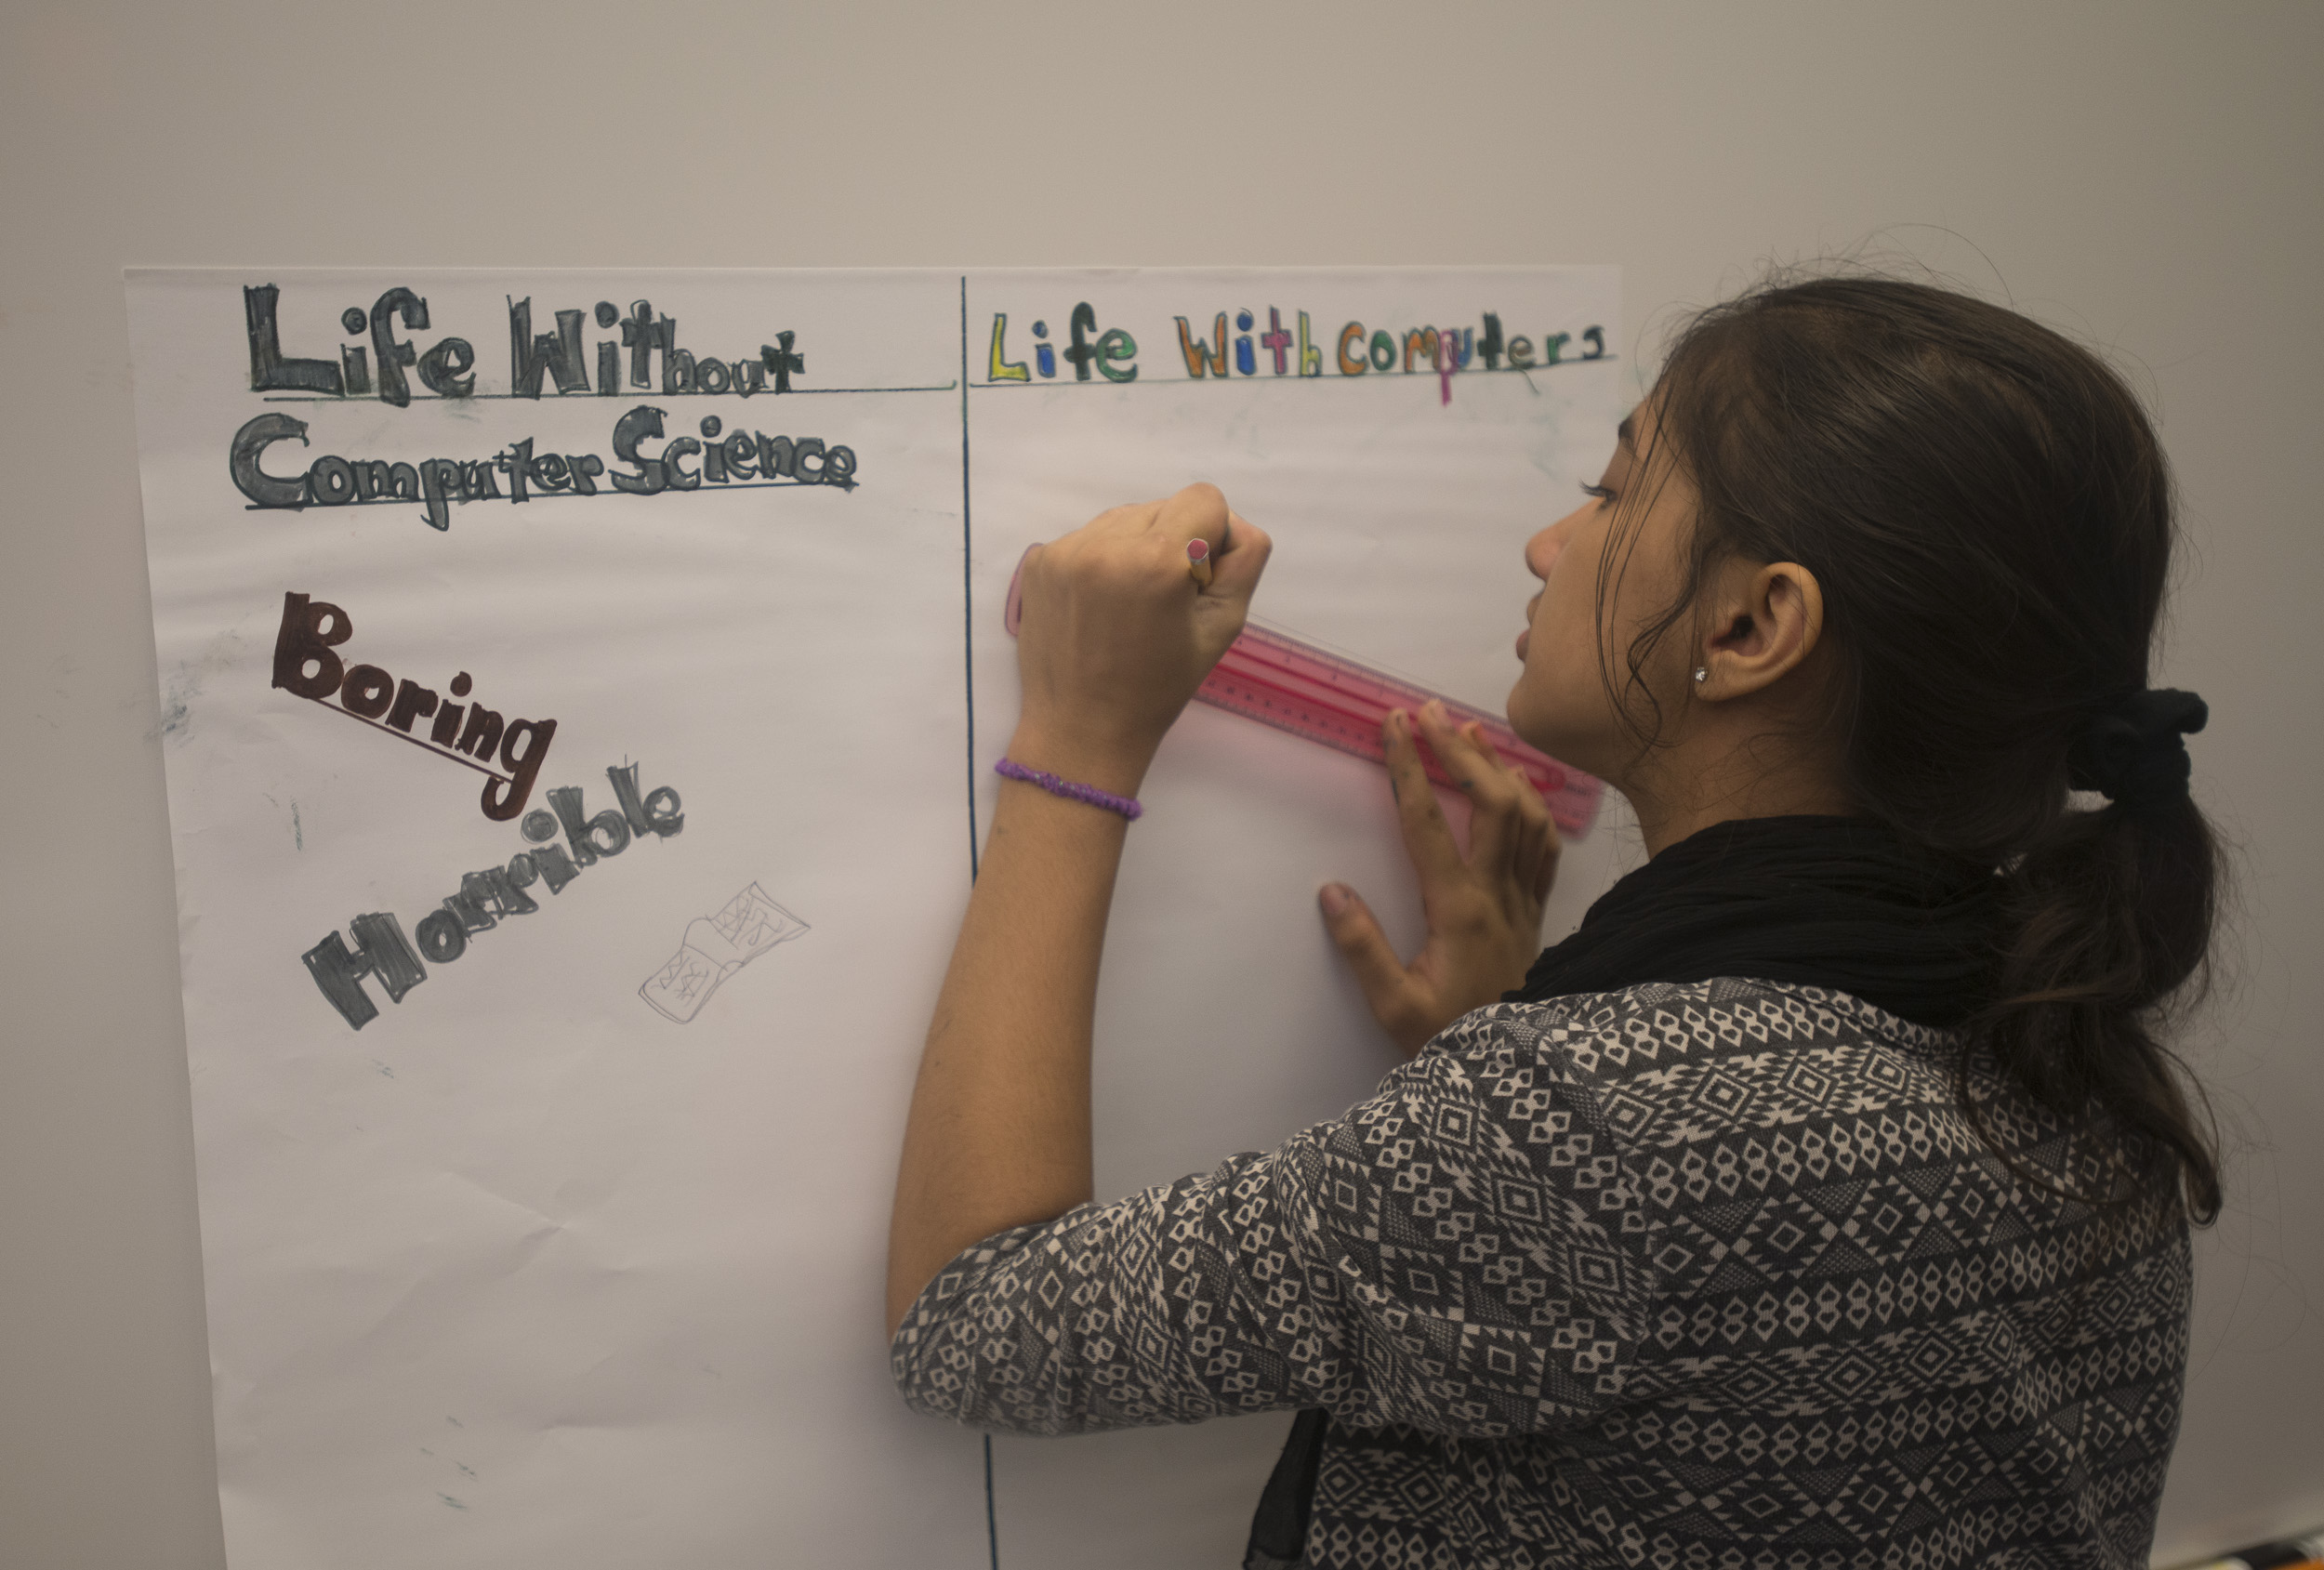 Life Without
Computer Science
Boring
Horrible
Life With computers